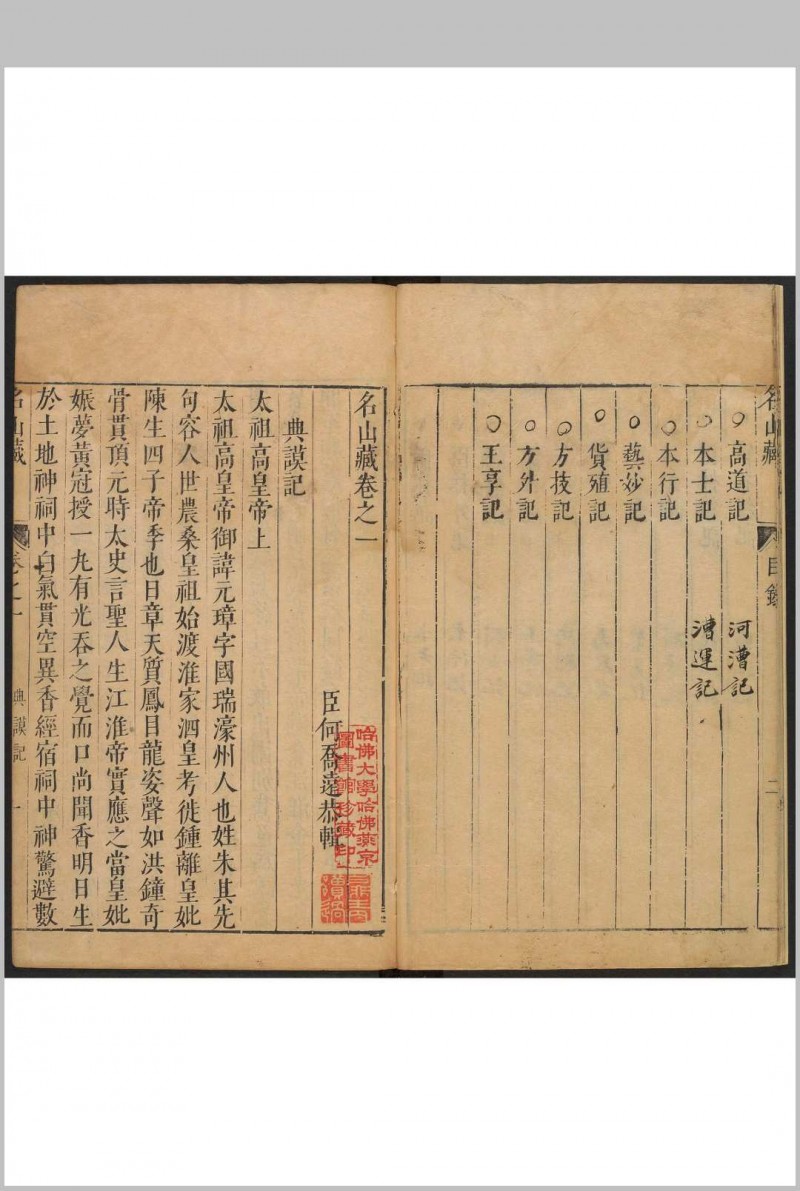 名山藏
目錄
二
高道記
河漕記
本士記
漕運記
本行記
藝妙記
貨殖記
方技記
方外記
王享記
名山藏卷之一
臣何喬遠恭輯
哈佛大學哈佛燕京
圖書館珍藏印
典謨記
太祖高皇帝上
太祖高皇帝御諱元璋字國瑞濠州人也姓朱其先
句容人世農桑皇祖始渡淮家泗皇考徙鍾離皇妣
陳生四子帝季也日章天質鳳目龍姿聲如洪鐘奇
骨貫頂元時太史言聖人生江淮帝實應之當皇妣
娠夢黃冠授一丸有光吞之覺而口尚聞香明日生
於土地神祠中白氣貫空異香經宿祠中神驚避數
名山藏
卷之一
典謨記
一